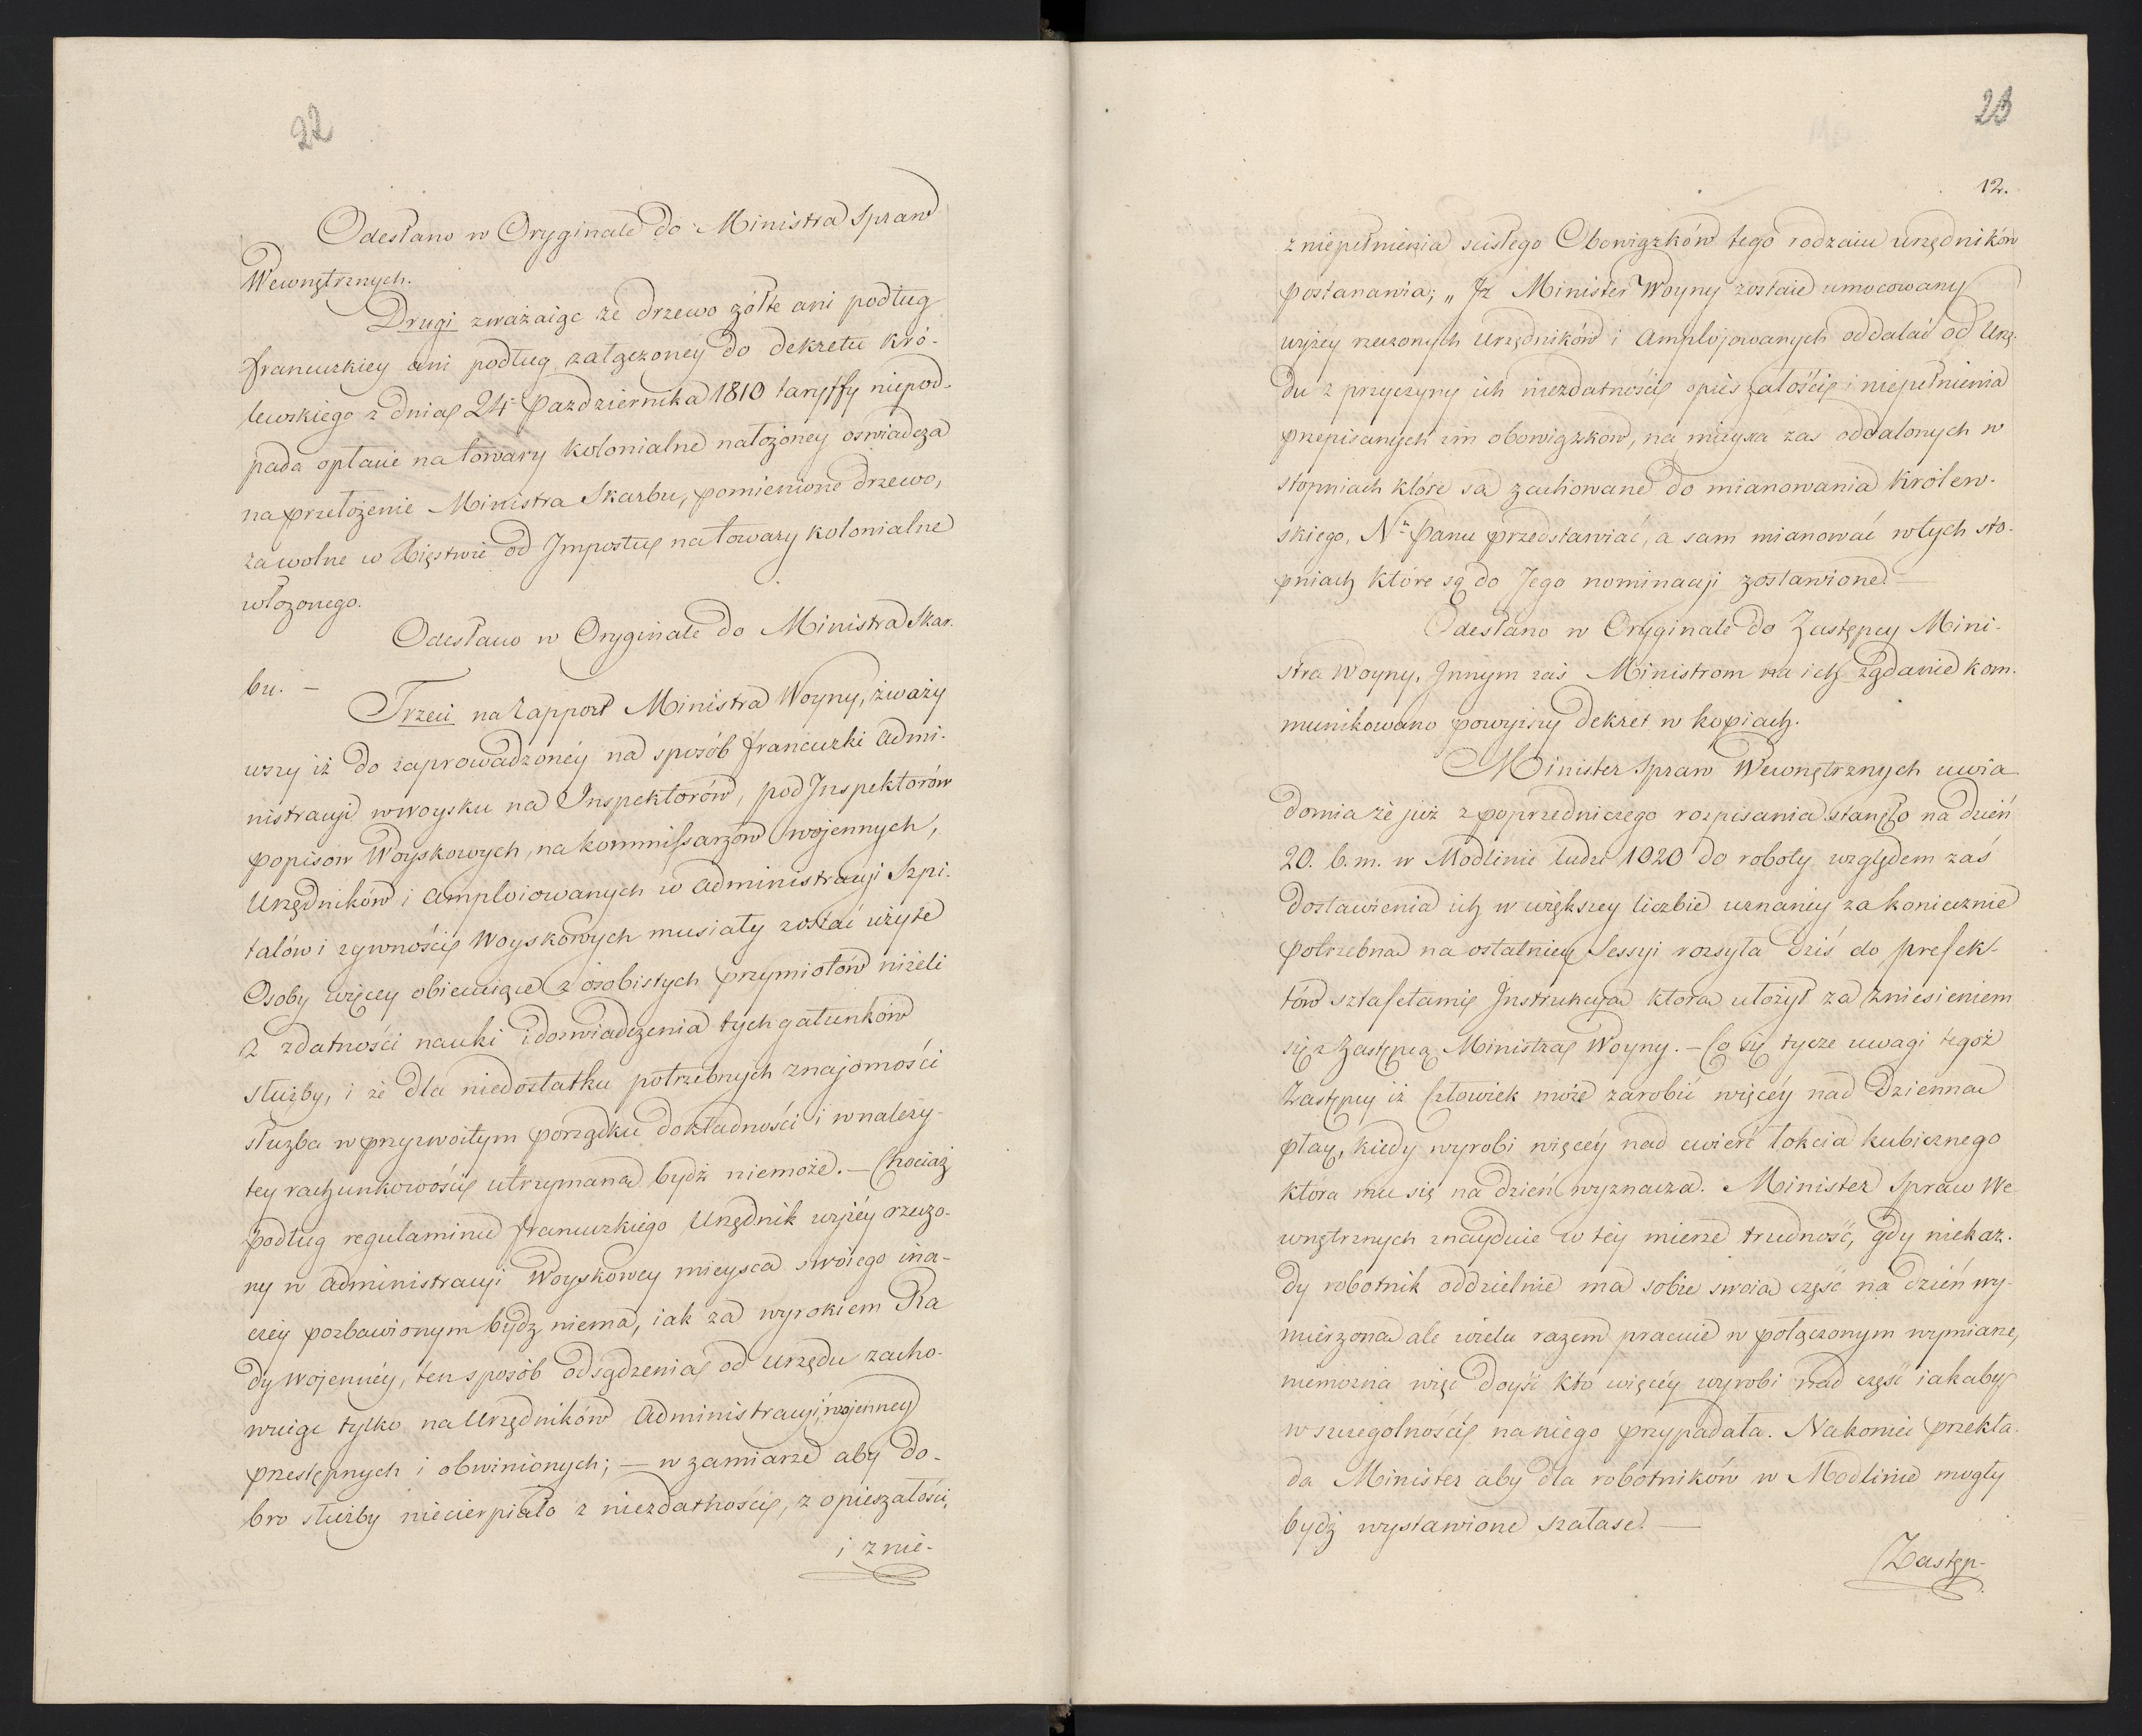 22
Odesłano w Oryginale do Ministra Spraw
Wewnętrznych.
Drugi zważaiąc że drzewo żółte ani podług
francuzkiey ani podług załączoney do dekretu kró-
lewskiego z dnia 24 Pazdziernika 1810 taryffy niepod-
pada opłacie na towary kolonialne nałożoney oswiadcza
na przełożenie Ministra Skarbu, pomienione drzewo,
za wolne w Xięstwie od Impostu na towary kolonialne
włożonego.
Odesłano w Oryginale do Ministra Skar-
bu. –
Trzeci na Rapport Ministra Woyny, zważy
wszy iż do zaprowadzonéy na sposób francuzki Admi-
nistracyi w woysku na Inspektorów, pod Inspektorów
popisow Woyskowych, na kommissarzow wojennych,
Urzędników i amploiowanych w administracyi Szpi-
talów i zywności Woyskowych musiały zostać użyte
Osoby więcey obiecuiące z osobistych przymiotów niżeli
z zdatności nauki i doswiadczenia tych gatunków
służby, i że dla niedostatku potrzebnych znajomości
służba w przyzwoitym porządku dokładności i w należy-
tey rachunkowości utrzymana bydź niemoże. – Chociaż
podług regulaminu francuzkiego Urzędnik wyżéy rzeczo-
ny w administracyi Woyskowey mieysca swoiego ina-
czéy pozbawionym bydz niema, iak za wyrokiem Ra
dy wojennéy, ten sposób odsądzenia od urzędu zacho-
wuiąc tylko na Urzędników Administracyi wojenney
przestępnych i obwinionych; – w zamiarze aby do-
bro służby niecierpiało z niezdatności, z opieszałości,
i z nie-
23
12.
z niepełnienia scisłego Obowiązków tego rodzaiu urzędników
postanawia; „ Iż Minister Woyny zostaie umocowany
wyżey rzeczonych Urzędników i Amplojowanych oddalać od Urzę-
du z przyczyny ich niezdatności opieszałości i niepełnienia
przepisanych im obowiązków, na mieysca zas oddalonych w
stopniach które sa zachowane do mianowania królew-
skiego, N. Panu przedstawiać, a sam mianować w tych sto-
pniach które są do Jego nominacji zostawione. –
Odesłano w Oryginale do Zastępcy Mini-
stra Woyny, Innym zaś Ministrom na ich żądanie kom-
munikowano powyższy dekret w kopiach.
Minister Spraw Wewnętrznych uwia
domia że już z poprzedniczego rozpisania stanęło na dzień
20. b. m. w Modlinie ludzi 1020 do roboty względem zaś
dostawienia ich w większey liczbie uznaney za koniecznie
potrzebna na ostatniey Sessyi rozsyła dziś do prefek-
tów sztafetami Instrukcya ktora ułożył za zniesieniem
się z Zastępca Ministra Woyny. – Co się tycze uwagi tegoż
Zastępcy iż człowiek może zarobić więcéy nad dzienna
płacę, kiedy wyrobi więcéy nad cwierć łokcia kubicznego
ktora mu się na dzień wyznacza. Minister Spraw We
wnętrznych znayduie w téy mierze trudność, gdy niekaż-
dy robotnik oddzielnie ma sobie swoia część na dzień wy-
mierzona ale wielu razem pracuie w połączonym wymiarze,
niemożna więc doyść kto więcéy wyrobi nad część iakaby
w szczególności na niego przypadała. Nakoniec przekła-
da Minister aby dla robotników w Modlinie mogły
bydź wystawione szałase. –
Zastęp-